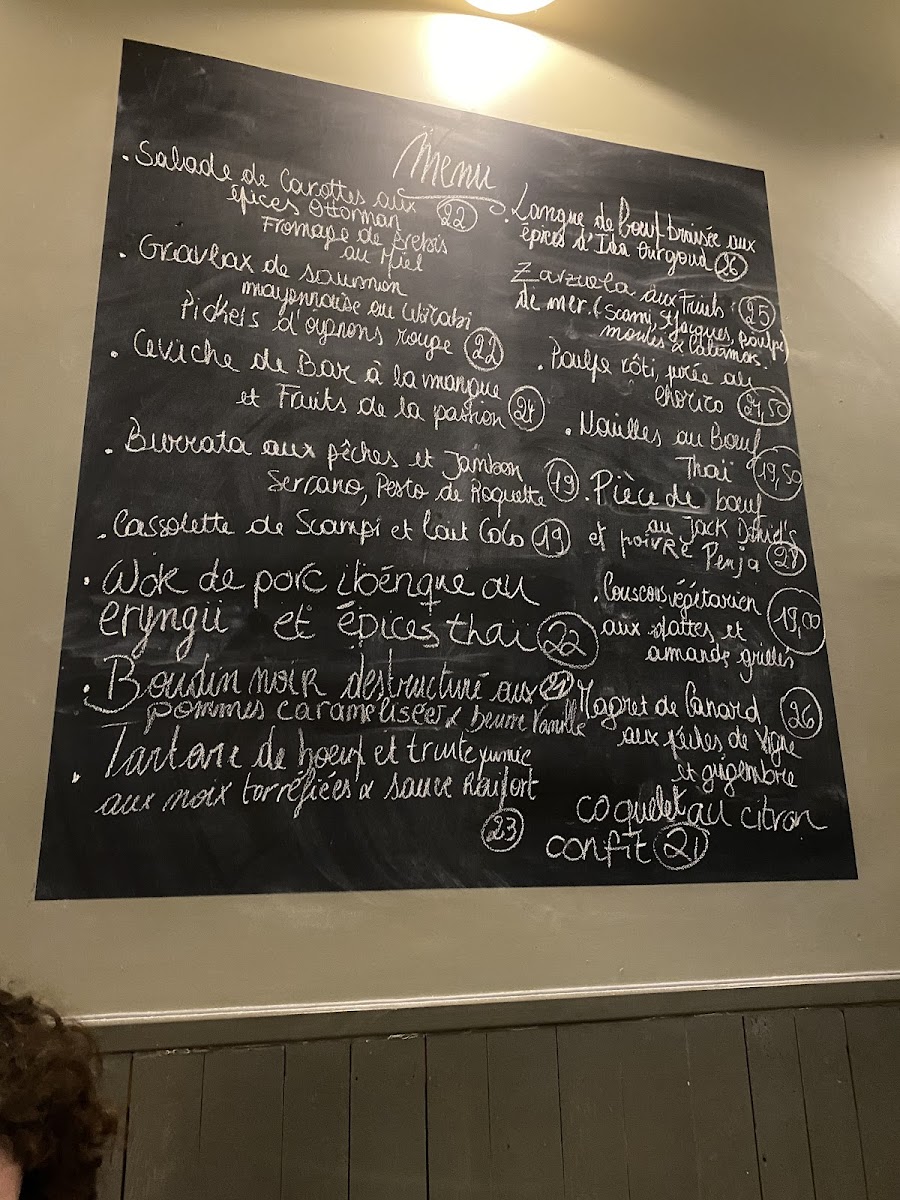 Menu
. Salade de Carottes aux
épices Ottoman 22
Fromage de Brebis
au Miel
. Gravlax de saumon
mayonnaise au Wasabi
Pickels d'oignons rouge 22
. Ceviche de Bar à la mangue
et Fruits de la passion 24
. Burrata aux pêches et Jambon
Serrano, Pesto de Roquette 19
. Cassolette de Scampi et lait Coco 19
. Wok de porc ibérique au
eryngii et épices thaï 22
. Boudin noir destructuré aux 21
pommes caramélisées & beurre Vanille
. Tartare de boeuf et truite fumée
aux noix torréfiées & sauce Raifort
23
. Langue de Boeuf braisée aux
épices d'Ida 26
Zarzuela aux Fruits 25
de mer (Scampi, St Jacques, poulpe)
moules &
. Poulpe rôti, purée au
chorizo 24,50
. Nouilles au Boeuf
Thaï 19,50
. Pièce de boeuf
au Jack Daniel's
et poivre Penja 28
. Couscous végétarien 19,00
aux dattes et
amandes grillés
Magret de Canard 26
aux pêches de Vigne
et gingembre
coquelet au citron
confit 21